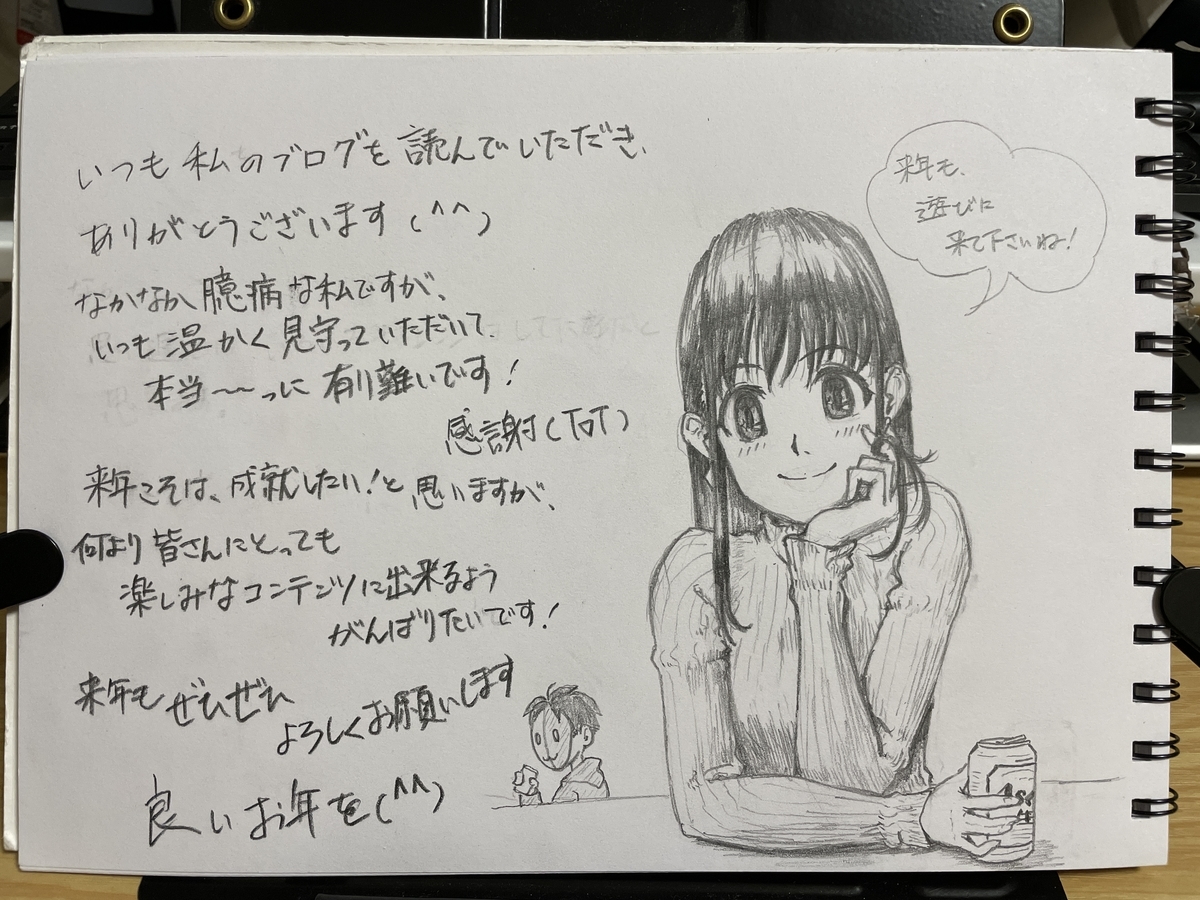 いつも私のブログを読んでいただき、
ありがとうございます(^^)
なかなか臆病な私ですが、
いつも温かく見守っていただいて
本当〜〜っに有り難いです!
感謝(ToT)
来年こそは、成就したい!と思いますが、
何より皆さんにとっても
楽しみなコンテンツに出来るよう
がんばりたいです!
来年もぜひぜひ
よろしくお願いします
良いお年を(^^)
来年も、
遊びに
来て下さいね!